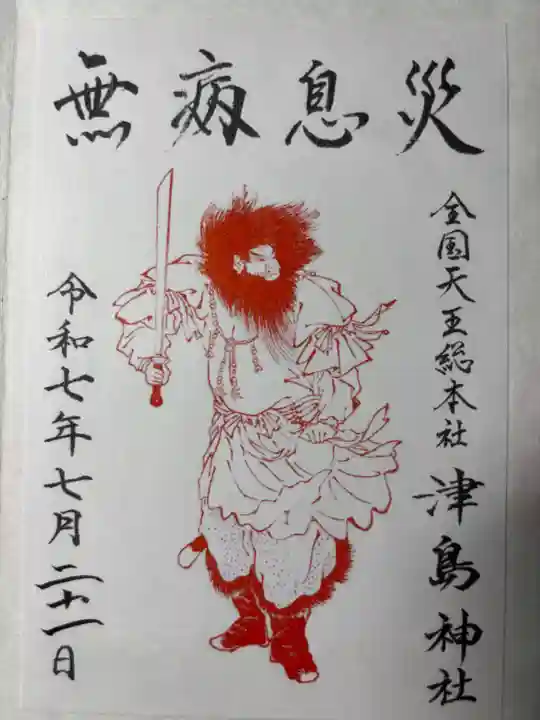 無病息災
全国天王総本社 津島神社
令和七年七月二十一日